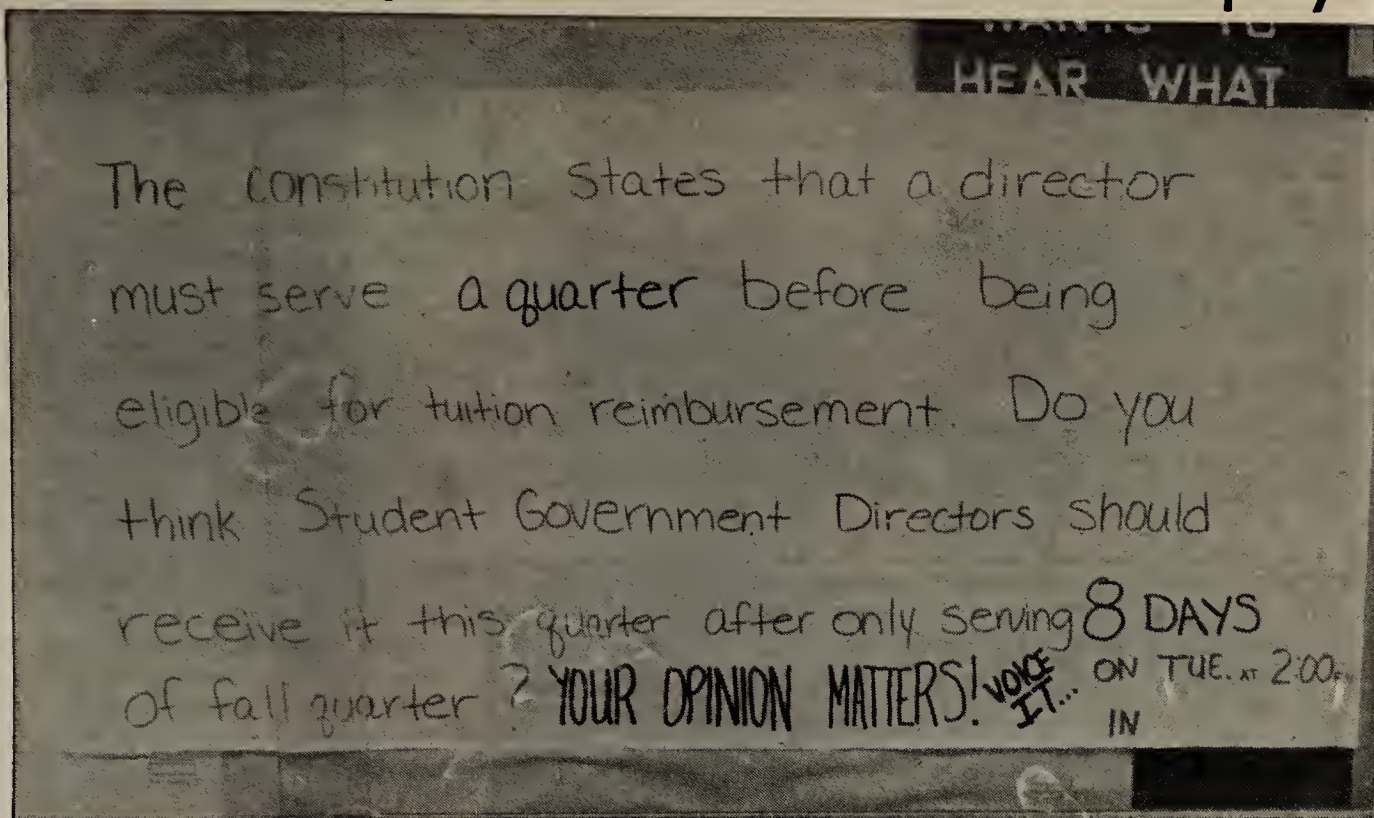 HEAR WHAT
The constitution States that a director
must serve a quarter before being
eligible for tuition reimbursement. Do you
think Student Government Directors should
receive it this quarter after only serving 8 DAYS
of fall quarter ? YOUR OPINION MATTERS! VOICE IT... ON TUE. AT 2:00
IN